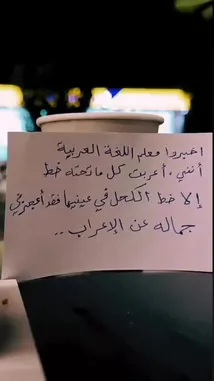 اخبروا معلم اللغة العربية
أنني، أعربت كل ما تحته خط
إلا خط الكحل في عينيها فقد أعجزني
جماله عن الإعراب ..